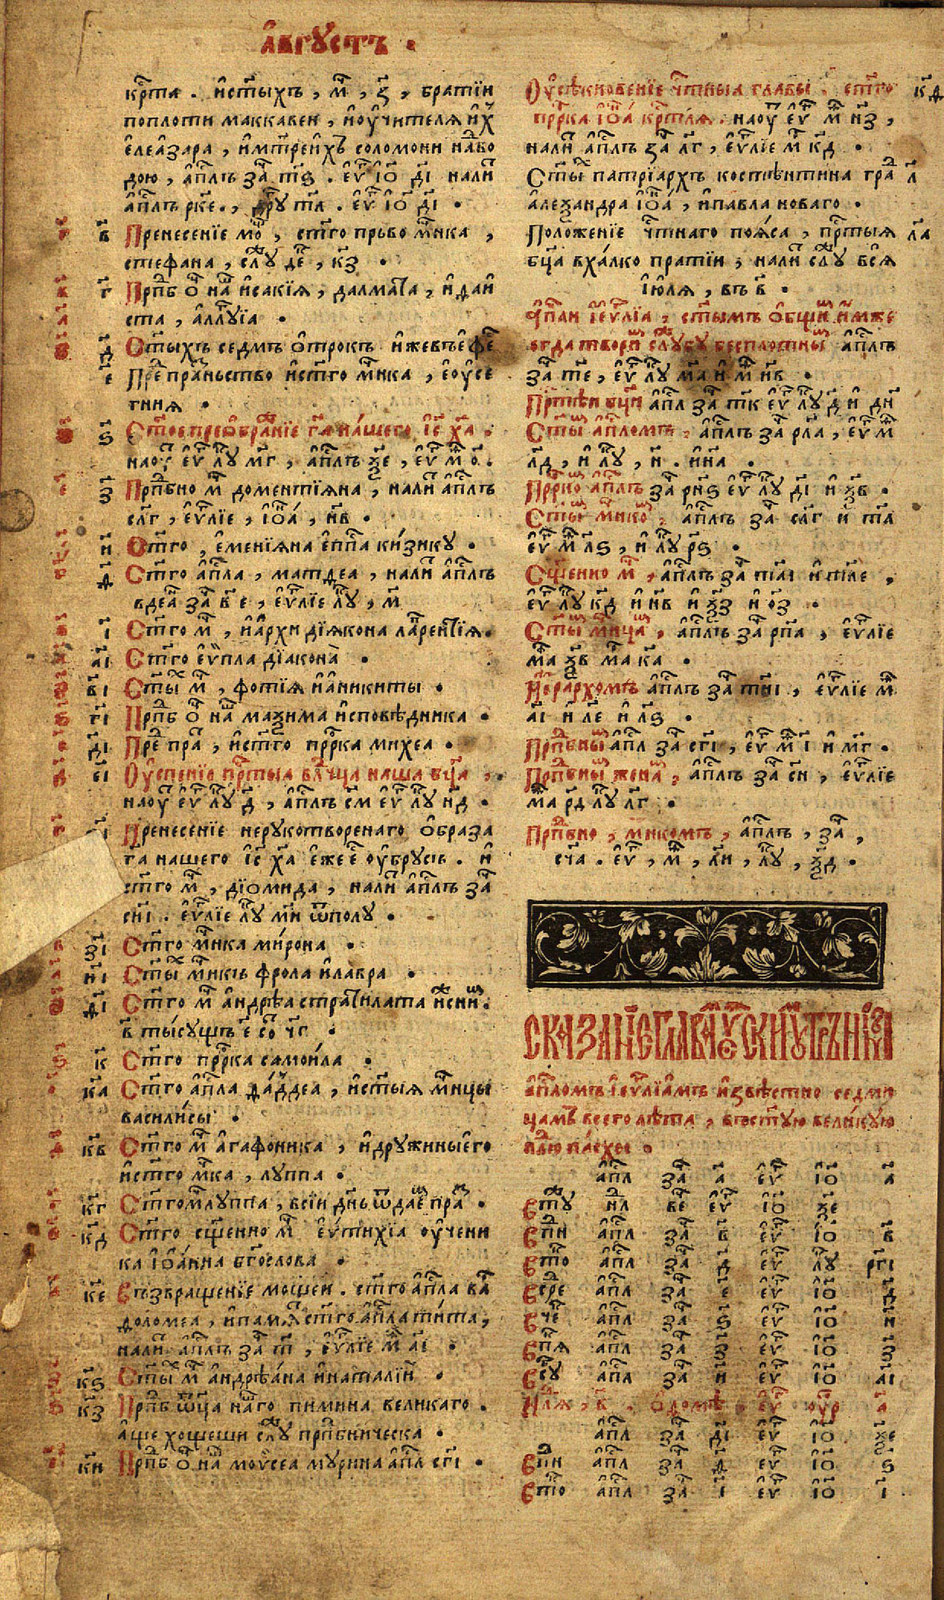 а҆́вгꙋстъ .
крⷭ҇та . и҆ст҃ыхъ , м҃ , з҃ , братїи
поплоти маккавеи , и҆оу҆чителѧ и҆́х
є҆леа́зара , и҆мт҃реи҆хъ соломони на́бо
дою , а҆пл҃ъ за҄ т҃ѕ . є҆ѵⷢ҇ і҆ѡ҃ д҃і нали҄
а҆пл҃ъ рк҃е . , дрꙋ т҃л . є҆ѵⷢ҇ і҆ѡ҃ д҃і .
в҃ Пренесенїе мо́щ , ст҃го прьво мч҃нка ,
стефана , слꙋ де҃ , к҃з .
г҃ Прпⷣб ѻ҃ на҃ и҆сакїѧ , далмата , и҆ даи
ста , а҆ллꙋїа .
д҃ Ст҃ыхъ седмъ ѻ҆трокъ и҆жевъефе҃
е҃ Пре҃ пра҃ньство и҆ст҃го мч҃нка , є҆оу҆се
гниѧ .
ѕ҃ Ст҃ое преѡбра҃нїе га҃ на́шего і҆с҃ ха҃ .
наоу҃ є҆ѵⷢ҇ лꙋ м҃г , а҆пл҃ъ ѯ҃е , є҆ѵⷢ҇ м҃ ѻ҃ .
з҃ Прпⷣбно м҃ дометїѧна , нали҄ а҆пл҃ъ
сл҃г , є҆ѵл҃їе , і҆ѡ҃а́ , н҃в .
и҃ Ст҃го , є҆менїѧна є҆пп҃а ки́зикꙋ .
ѳ҃ Ст҃го а҆пл҃а , матдеа , нали҄ а҆пл҃ъ
вдеа҃ за҄ в҃ е , є҆ѵл҃їе лꙋ҃ , м҃
і҃ Ст҃го м҃ , и҆а҆рхи дїѧкона ла҃ренїѧ .
а҃і Ст҃го є҆ѵ́пла дїакона̀ .
в҃і Ст҃ы м҃ , фотїѧ и҆а҆никиты .
г҃і Прпⷣб ѻ҃ на҃ маѯима и҆споведника .
д҃і Пре҃ пра҃ , и҆ст҃го пр҃рка михеа .
е҃і Оу҆спенїе пр҃тыѧ вл҃чца наша бц҃а , .
наоу҃ є҆ѵⷢ҇ лꙋ д҃ , а҆пл҃ъ с҃м є҆ѵⷢ҇ лꙋ н҃д .
Пренесенїе нерꙋкотворенаго ѻ҆браза
га҃ нашего і҆с҃ ха҃ є҆жее҃ оу҆брꙋсь . и҆
ст҃го м҃ , дїѡмида , нали҄ а҆пл҃ъ за҄
сн҃і . є҆ѵл҃їе лꙋ҃ м҃и ѿполꙋ .
з҃і Ст҃го мч҃нка ми́рона .
и҃і Ст҃ы мч҃нкъ фрола и҆лавра .
ѳ҃і Ст҃го м҃ а҆ндреа стратилата и҆сни҃ .
в҃ ты́сꙋщъ є҃ со҃ ч҃г .
к҃ Ст҃го пр҃рка самои́ла .
к҃а Ст҃го а҆пл҃а да́ддеа , и҆ст҃ыѧ мч҃ницы
василі́сы .
к҃в Ст҃го м҃ а҆гафоника , и҆дрꙋжиныє҆го
и҆ст҃го м҃ка , лꙋппа .
к҃г Ст҃гом҃лꙋппа , всїи дн҃ь ѿдае҃ пра҃ .
к҃д Ст҃го сщ҃енно м҃ є҆ѵтихїа оу҆чени
ка і҆ѡа́нна бг҃ослова .
к҃е Възвращенїе мощеи . ст҃го а҆пл҃а ва҃
доломеа , и҆пам҃ѧ ст҃го а҆пл҃а ти́та ,
нали҄ а҆пл҃ъ за҄ т҃ , є҆ѵл҃їе м҃ а҃і .
к҃ѕ Ст҃ы м҃ а҆ндреа́на и҆наталіи҃ .
к҃з Прпⷣб ѿц҃а на҃го пимина великаго .
а҆ще хощеши слꙋ прпⷣбническа .
к҃и Прпⷣб ѻ҃ на҃ мои҆сеа мꙋрина а҆пл҃ сг҃і .
Оу҆секновенїе чт҃ныѧ главы . ст҃го к҃ѳ
пр҃рка і҆ѡ҃а́ крⷭ҇тлѧ . наоу҃ є҆ѵⷢ҇ м҃ н҃з ,
нали҄ а҆пл҃ъ за҄ л҃г , є҆ѵл҃їе м҃ к҃д .
Ст҃ы патрїархъ костѧнтина гра҃ л҃
а҆леѯандра і҆ѡ҃а́ , и҆павла новаго .
Положенїе чт҃наго поѧса , пр҃тыѧ л҃а
бц҃а вха́лко пратїи , нали҄ слꙋ всѧ
і҆ю́лѧ , въ в҃ .
а҆́п҃ли і҆є҆ѵл҃їа , ст҃ымъ ѻ҆бщи҃ и҆́мже
егда твори҃ слꙋ́бꙋ бесплотны҃ а҆пл҃ъ
за҄ т҃е , є҆ѵⷢ҇ лꙋ м҃а и҆ м҃ н҃в .
Пр҃тѣи бц҃и а҆пл҃ за҄ т҃к є҆ѵⷢ҇ лꙋ д҃ и҆ д҃н
Ст҃ы а҆пл҃омъ , а҆пл҃ъ за҄ рл҃а , є҆ѵⷢ҇ м҃
л҃д , и҆ лꙋ҃ , н҃ . и҆на҃ .
Пр҃рко а҆пл҃ъ за҄ рн҃ѕ є҆ѵⷢ҇ лꙋ д҃і и҆ ѯ҃в .
Ст҃ы мч҃нико , а҆пл҃ъ за҄ сл҃г и҆ т҃л
є҆ѵⷢ҇ м҃ л҃ѕ , и҆ лꙋ р҃ѕ .
Сщ҃енно м҃ , а҆пл҃ъ за҄ тл҃і и҆ тл҃е ,
є҆ѵⷢ҇ лꙋ к҃д и҆ н҃в и҆ ѯ҃з и҆ ѻ҃з .
Ст҃ы мч҃ница , а҆пл҃ъ за҄ рп҃а , є҆ѵл҃їе
м҃а ѯ҃в м҃а к҃а .
И҆е҆рархомъ а҆пл҃ъ за҄ тн҃і , є҆ѵл҃їе м҃
а҃і и҆ л҃е и҆ л҃ѕ .
Прпⷣбны҃ а҆пл҃ за҄ сг҃і , є҆ѵⷢ҇ м҃ і҃ и҆ м҃г .
Прпⷣбны҃ жена҃ , а҆пл҃ъ за҄ с҃н , є҆ѵл҃їе
м҃а р҃д лꙋ л҃г .
Прпⷣбно , мч҃никомъ , а҆пл҃ъ , за҄ ,
сч҃а . є҆ѵⷢ҇ , м҃ , л҃и , лꙋ҃ , ѯ҃д .
а҆пл҃омъ і҆є҆ѵл҃їамъ и҆звестно седми
цамъ всего лета , в҆ъст҃ꙋю вели́кꙋю
не҃лю пасхы .
а҆пл҃ за҄ а҃ є҆ѵⷢ҇ і҆ѡ҃ а҃
в҆ту нл҃ ве҃ є҆ѵⷢ҇ і҆ѡ҃ ѯ҃е
впн҃ а҆пл҃ за҄ в҃ є҆ѵⷢ҇ і҆ѡ҃ в҃
вто҃ а҆пл҃ за҄ д҃ є҆ѵⷢ҇ лꙋ рг҃і
вср҃е а҆пл҃ за҄ е҃ є҆ѵⷢ҇ і҆ѡ҃ д҃
вче҃ а҆пл҃ за҄ ѕ҃ є҆ѵⷢ҇ і҆ѡ҃ и҃
впѧ҃ а҆пл҃ за҄ з҃ є҆ѵⷢ҇ і҆ѡ҃ з҃
всꙋ҃ а҆пл҃ за҄ и҃ є҆ѵⷢ҇ і҆ѡ҃ а҃і
Нл҃ѧ , в҃ . ѻ҆ доме є҆ѵⷢ҇ оу҆р҃ а҃
а҆пл҃ за҄ д҃і є҆ѵⷢ҇ і҆ѡ҃ ѯ҃е
впн҃ а҆пл҃ за҄ ѳ҃ є҆ѵⷢ҇ і҆ѡ҃ ѕ҃
вто҃ а҆пл҃ за҄ і҃ є҆ѵⷢ҇ і҆ѡ҃ і҃